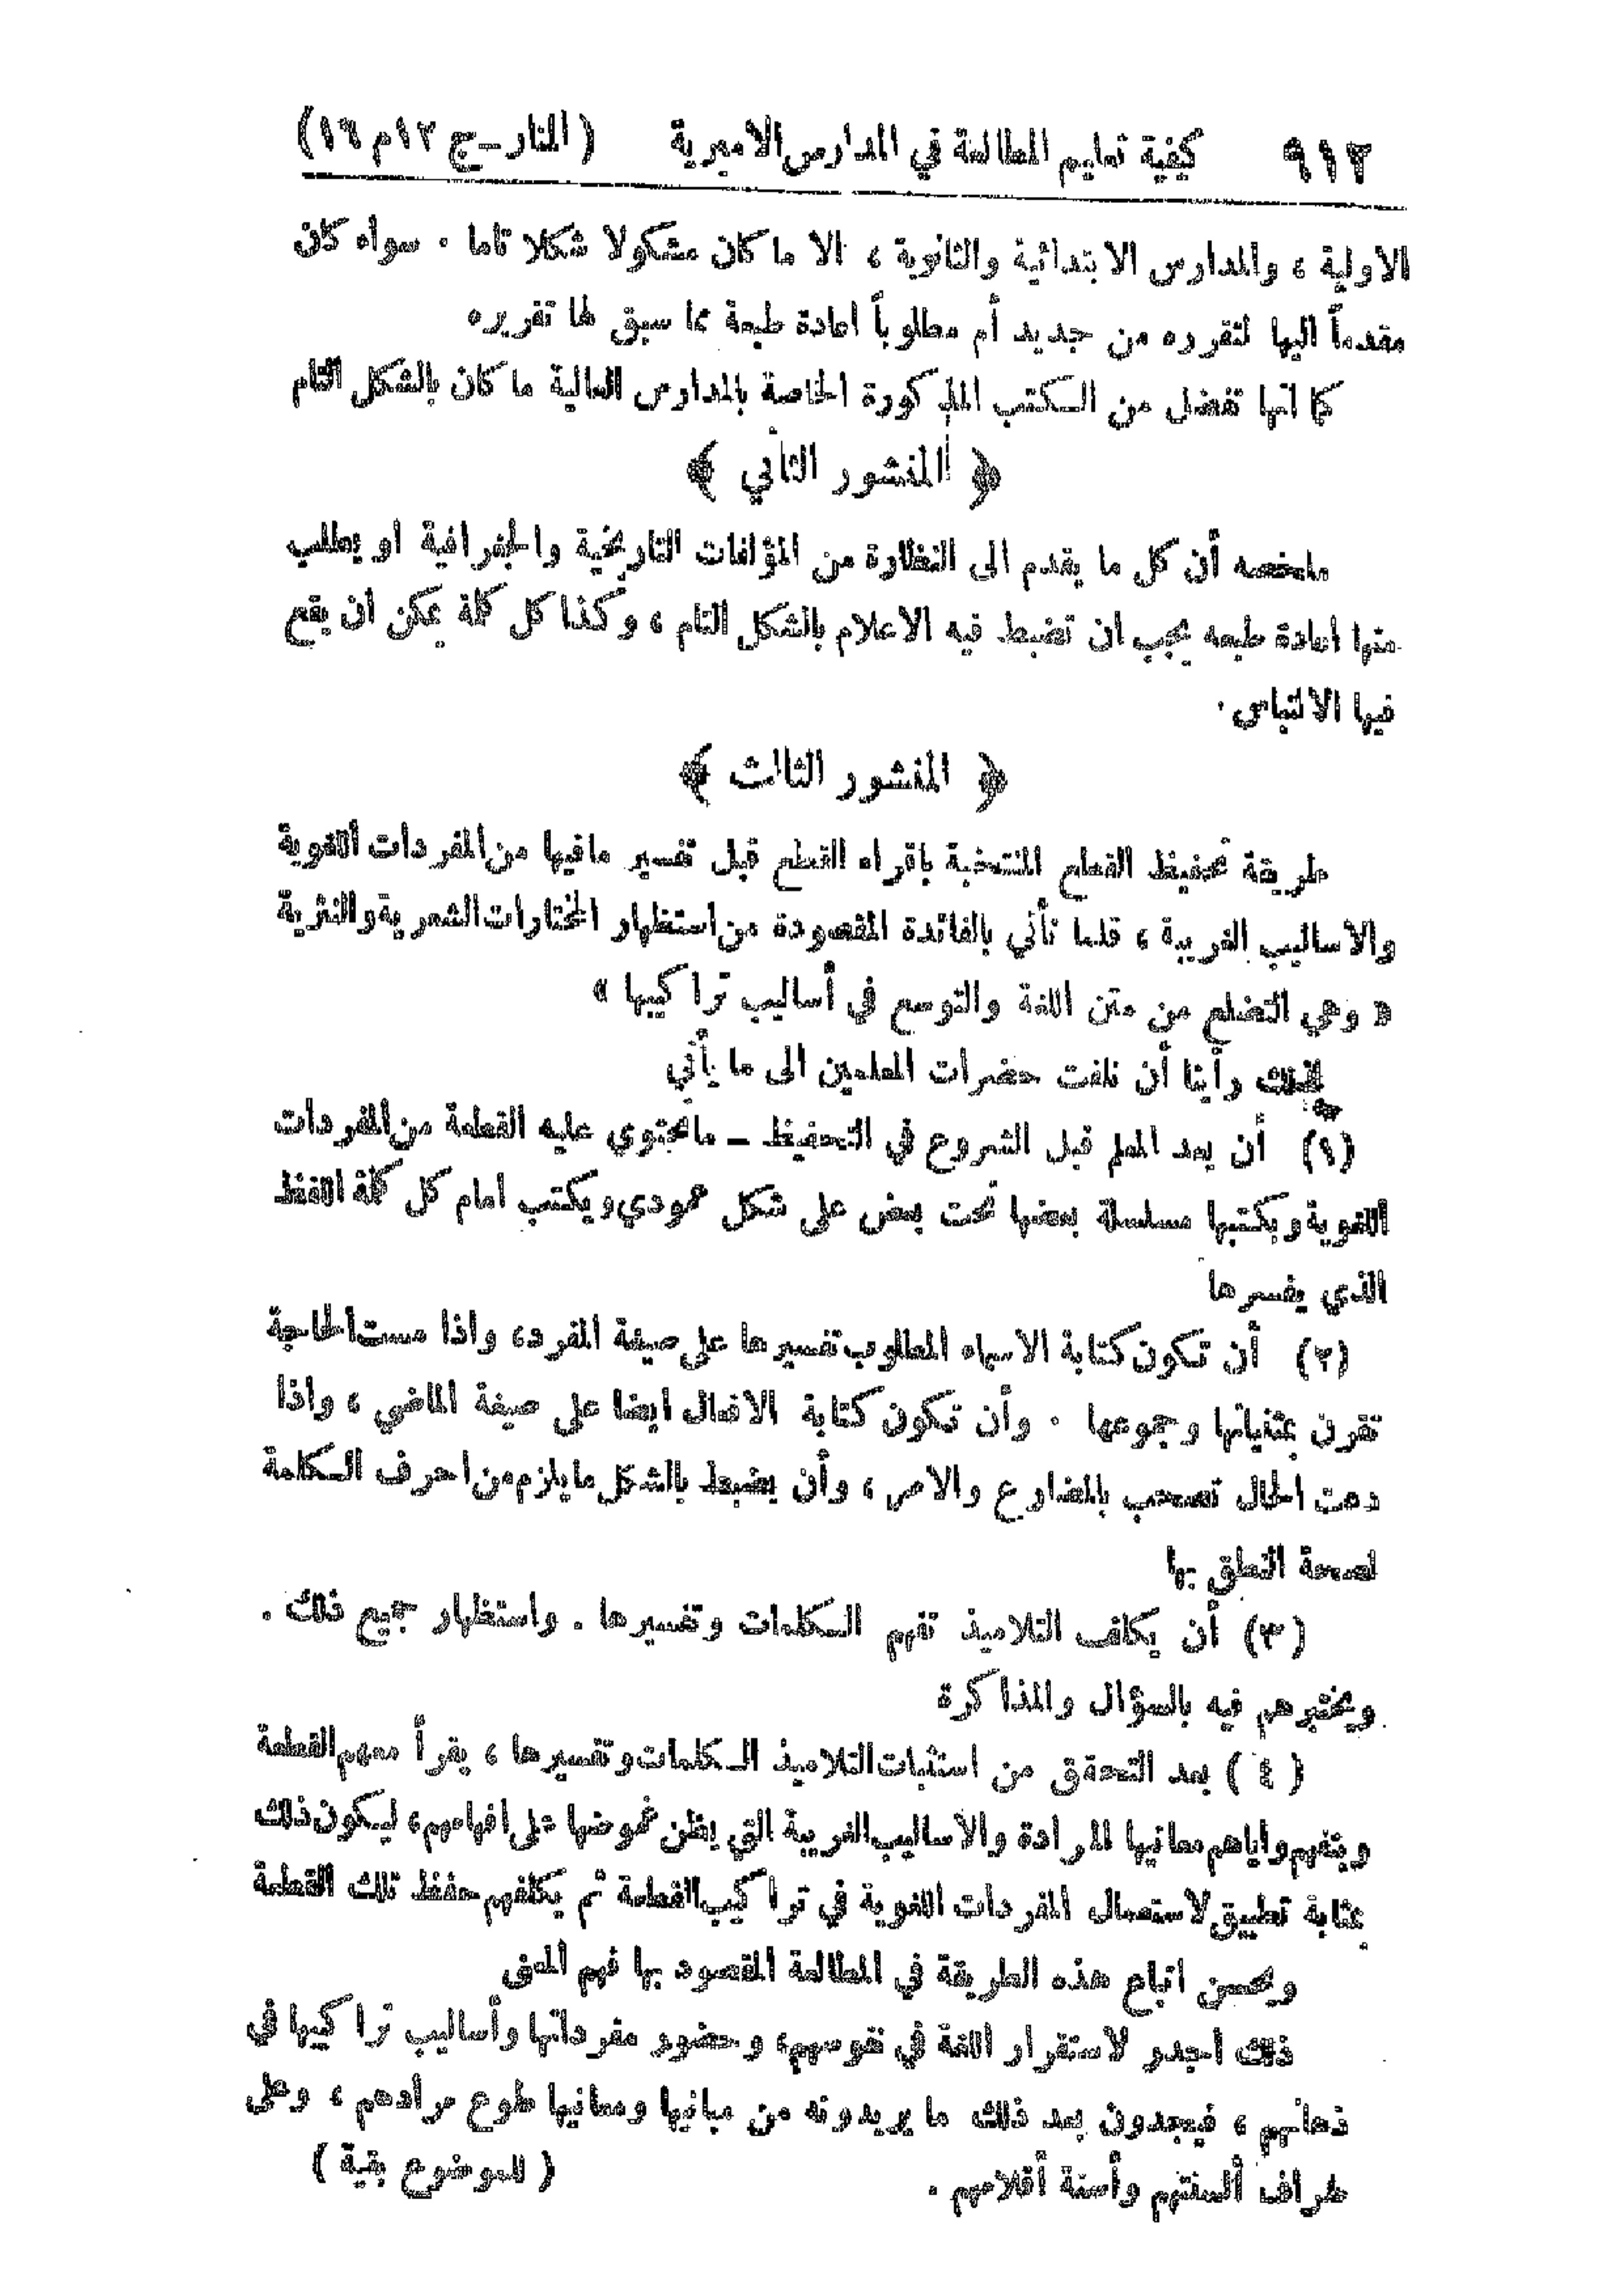 ٩١٢ كيفية تعليم المطالعة في المدارس الاميرية (المنار ـ ج ١٢ م ١٦)
الاولية ، والمدارس الابتدائية والثانوية ، الا ما كان مشكولا شكلا تاما . سواء كان
مقدماً اليها لتقرره من جديد أم مطلوباً اعادة طبعة مما سبق لها تقريره
كما انها تفضل من الكتب المذكورة الخاصة بالمدارس العالية ما كان بالشكل التام
﴿ المنشور الثاني ﴾
ملخصه أن كل ما يقدم الى النظارة من المؤلفات التاريخية والجغرافية او يطلب
منها اعادة طبعه يجب ان تضبط فيه الاعلام بالشكل التام ، وكذا كل كلمة يمكن ان يقع
فيها الالتباس .
﴿ المنشور الثالث ﴾
طريقة تحفيظ القطع المنتخبة باقراء القطع قبل تفسير مافيها من المفردات اللغوية
والاساليب الغريبة ، قلما تأتي بالفائدة المقصودة من استظهار المختارات الشعرية والنثرية
« وهي التضلع من متن اللغة والتوسع في أساليب تراكيبها »
لذلك رأينا أن نلفت حضرات المعلمين الى ما يأتي
(١) أن يعد المعلم قبل الشروع في التحفيظ ـ ما تحتوي عليه القطعة من المفردات
اللغوية ويكتبها مسلسلة بعضها تحت بعض على شكل عمودي ويكتب امام كل كلمة اللفظ
الذي يفسرها
(٢) أن تكون كتابة الاسماء المطلوب تفسيرها على صيغة المفرد، واذا مست الحاجة
تقرن بمثنياتها وجموعها . وأن تكون كتابة الافعال ايضا على صيغة الماضي ، واذا
دعت الحال تصحب بالمضارع والامر ، وأن يضبط بالشكل ما يلزم من احرف الكلمة
لصحة النطق بها
(٣) أن يكلف التلاميذ تفهم الكلمات وتفسيرها . واستظهار جميع ذلك .
ويختبرهم فيه بالسؤال والمذاكرة
(٤) بعد التحقق من استثبات التلاميذ الكلمات وتفسيرها ، يقرأ معهم القطعة
ويتفهم واياهم معانيها المرادة والاساليب الغريبة التي يظن غموضها على افهامهم، ليكون ذلك
بمثابة تطبيق لاستعمال المفردات اللغوية في تراكيب القطعة ثم يكلفهم حفظ تلك القطعة
ويحسن اتباع هذه الطريقة في المطالعة المقصود بها فهم المعنى
ذلك اجدر لاستقرار اللغة في نفوسهم، وحضور مفرداتها وأساليب تراكيبها في
ذهانهم ، فيجدون بعد ذلك ما يريدونه من مبانيها ومعانيها طوع مرادهم ، وعلى
طراف ألسنتهم وأسنة أقلامهم . ( للموضوع بقية )